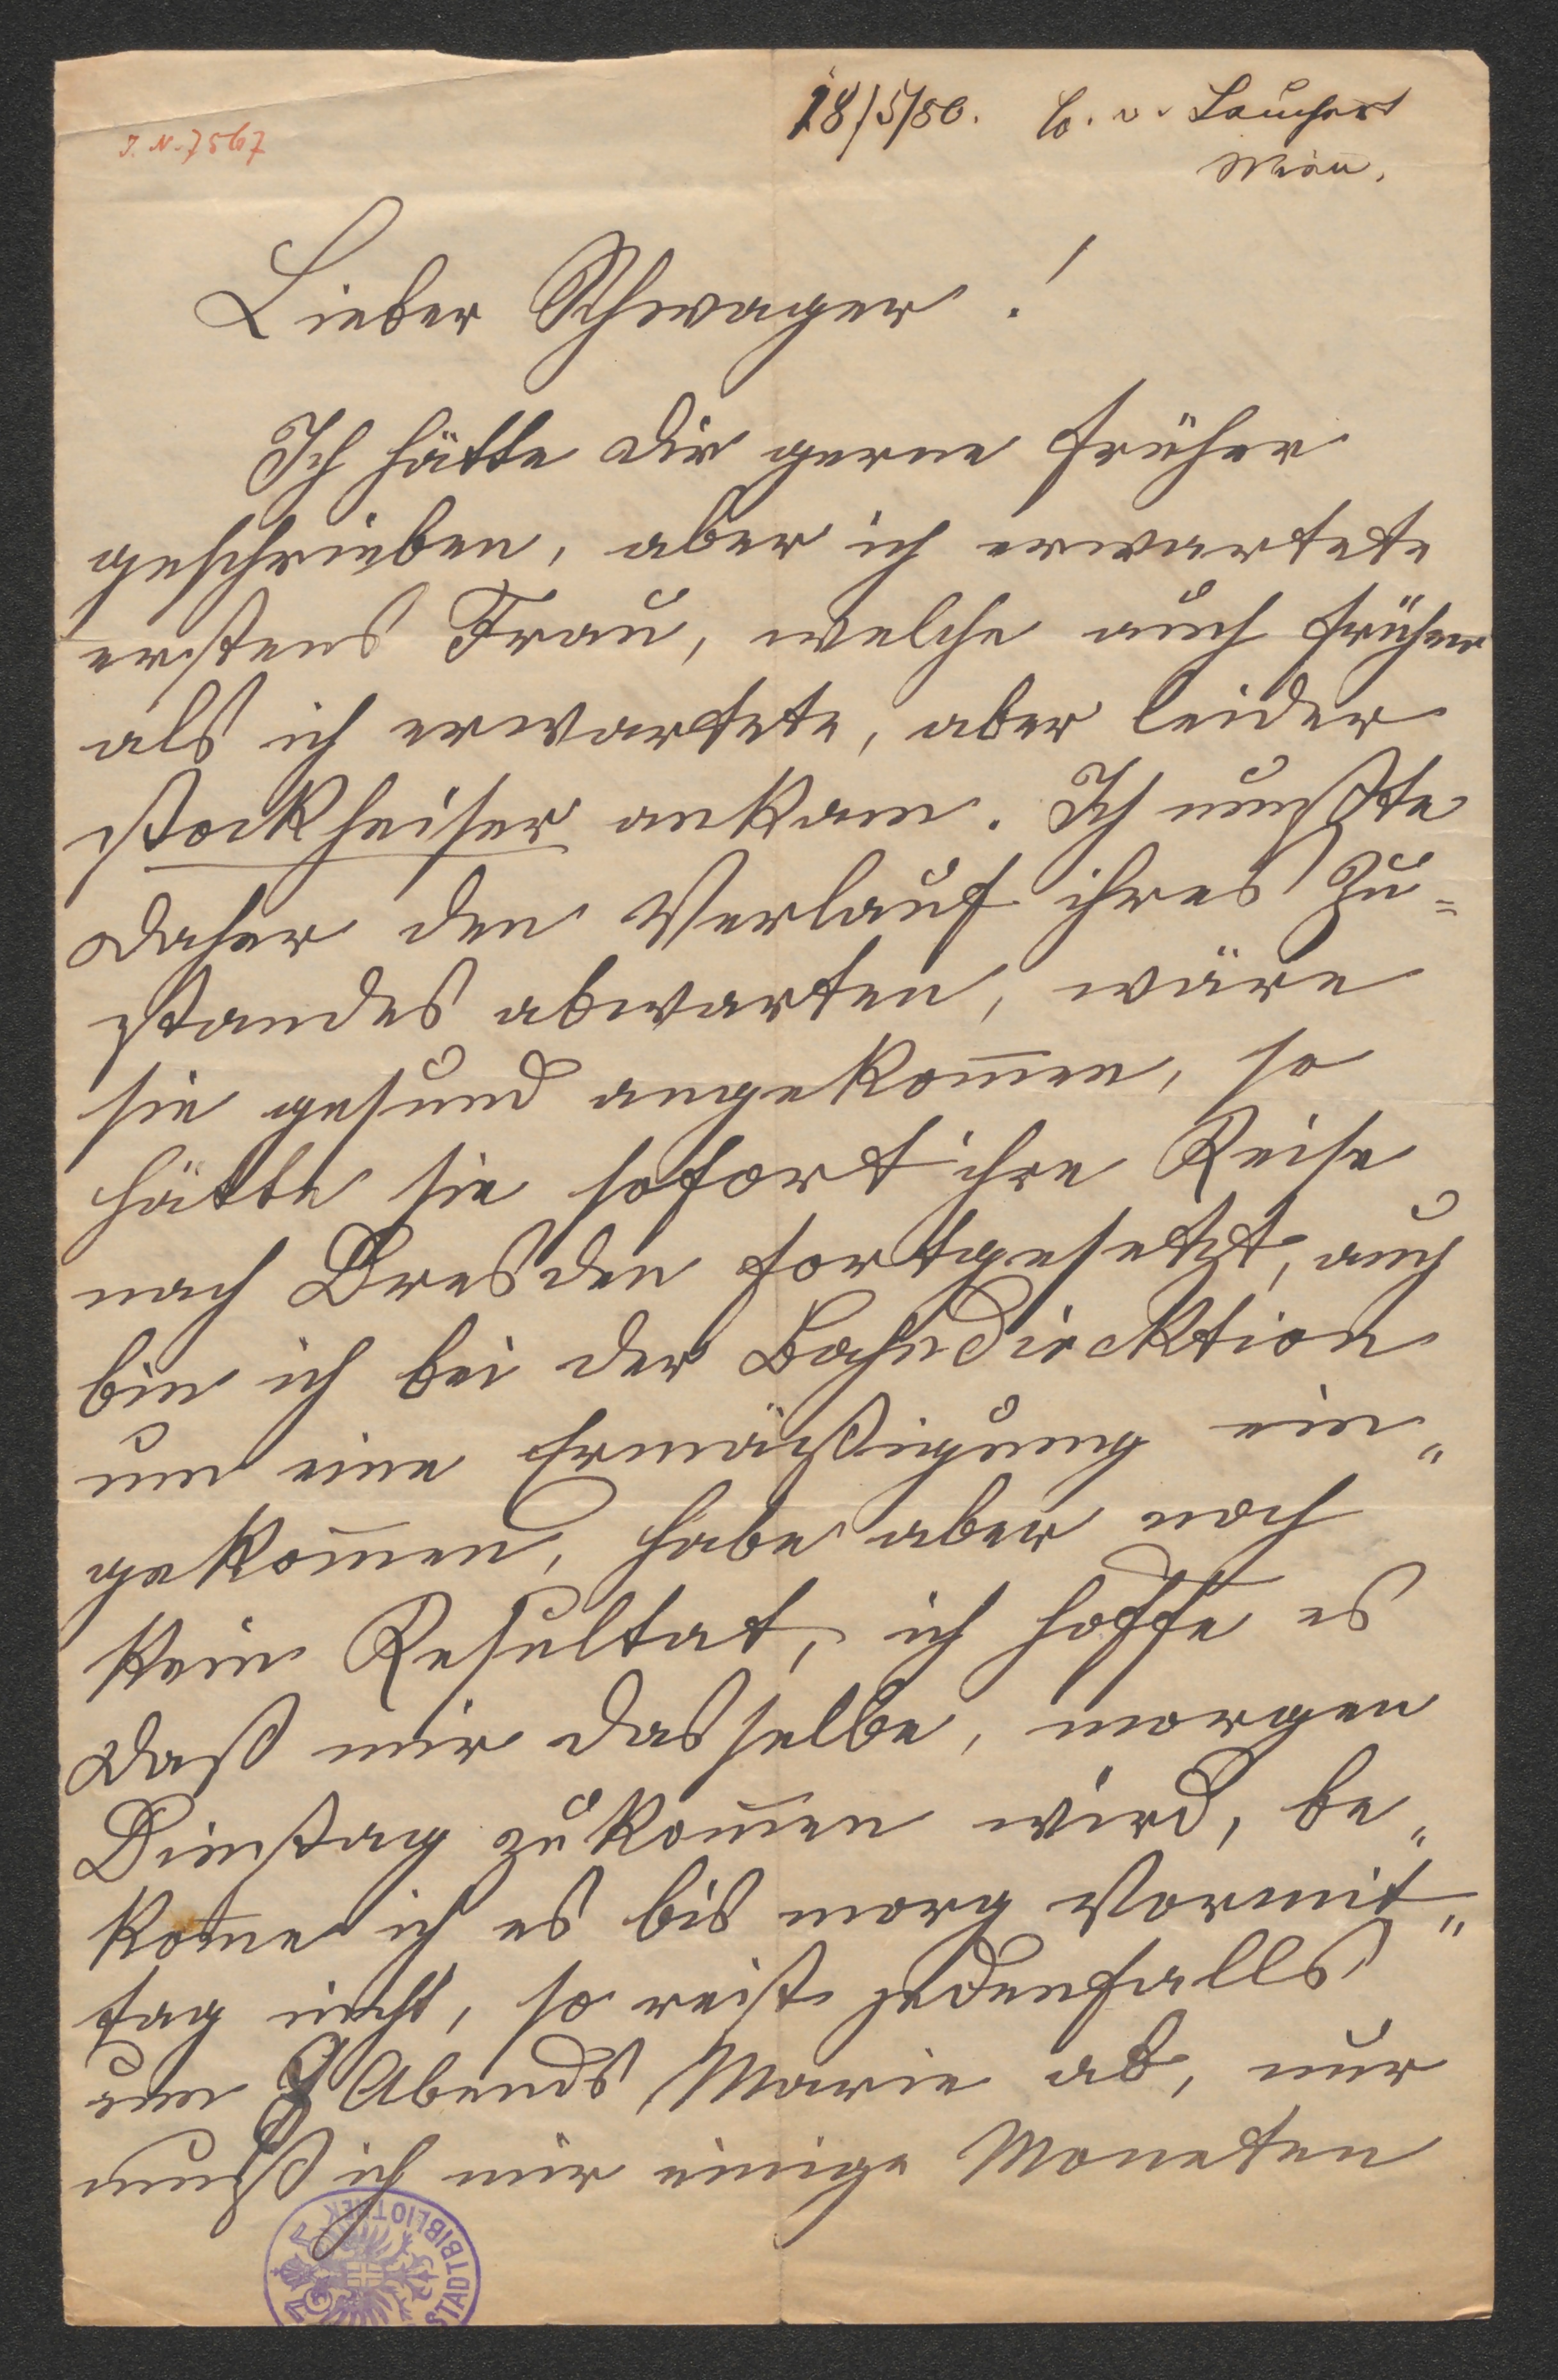 18/5/80. C. v. Lauchert
Wien.
I.N. 7567
Lieber Schwager!
Ich hätte Dir gerne früher
geschrieben, aber ich erwartete
erstens Frau, welche auch früher
als ich erwartete, aber leider
stockheiser ankam. Ich mußte
daher den Verlauf ihres Zu=
standes abwarten, wäre
sie gesund angekom̄en, so
hätte sie sofort ihre Reise
nach Dresden fortgesetzt, auch
bin ich bei der Bahndirecktion
um eine Ermäßigung ein"
gekom̄en, habe aber noch
kein Resultat, ich hoffe es
daß mir dasselbe, morgen
Dienstag zukom̄en wird, be"
kom̄e ich es bis morg Vormit"
tag nicht, so reist jedenfalls
um Abends Marie ab, nur
muß ich mir einige Moneten
STADTBIBLIOTHEK